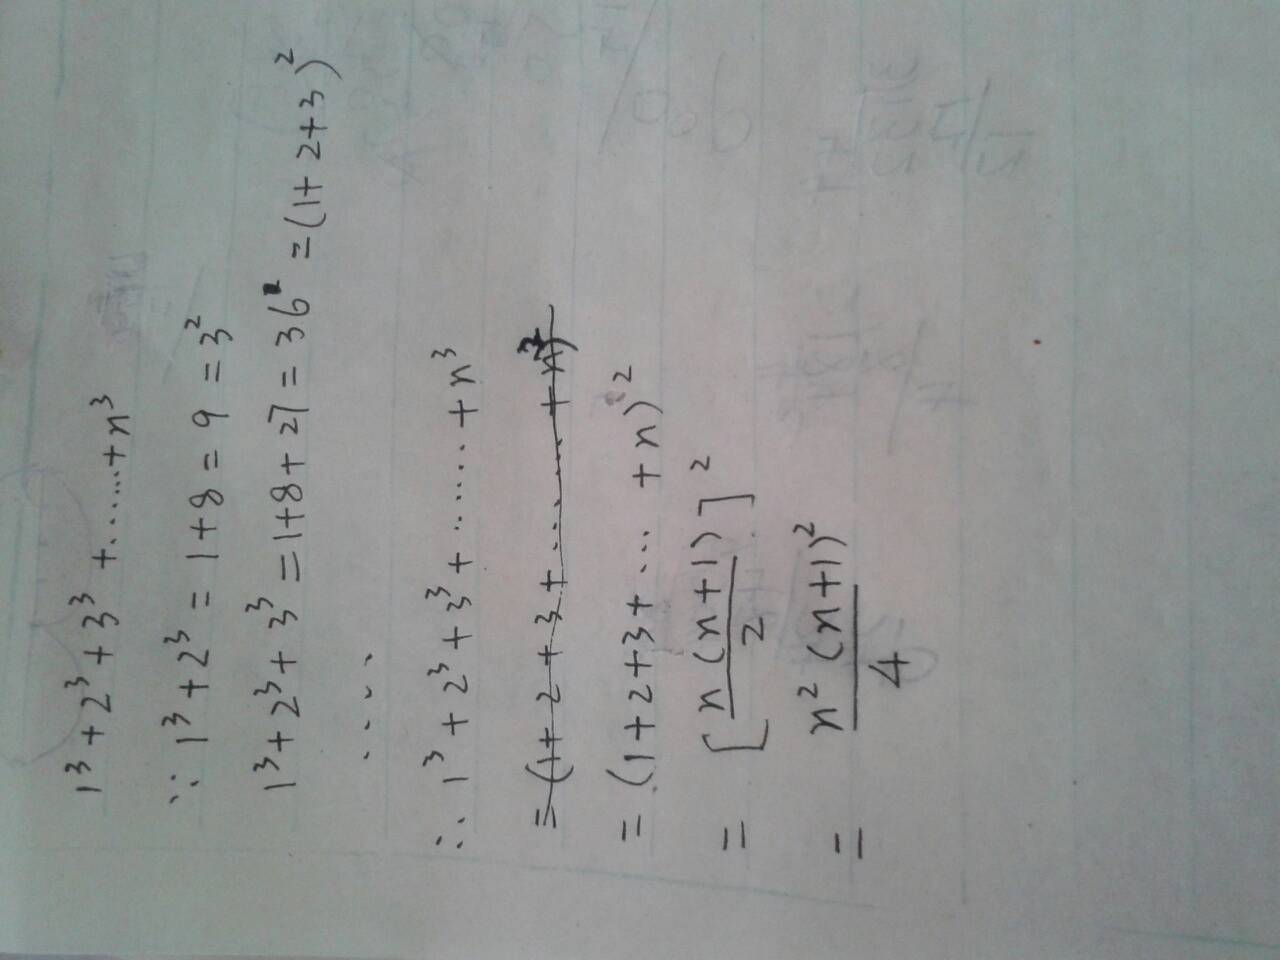 1³+2³+3³+……+n³
∵ 1³+2³=1+8=9=3²
1³+2³+3³=1+8+27=36=(1+2+3)²
……
∴ 1³+2³+3³+……+n³
=(1+2+3+……+n)²
=(1+2+3+…+n)²
=[n(n+1)/2]²
=n²(n+1)²/4